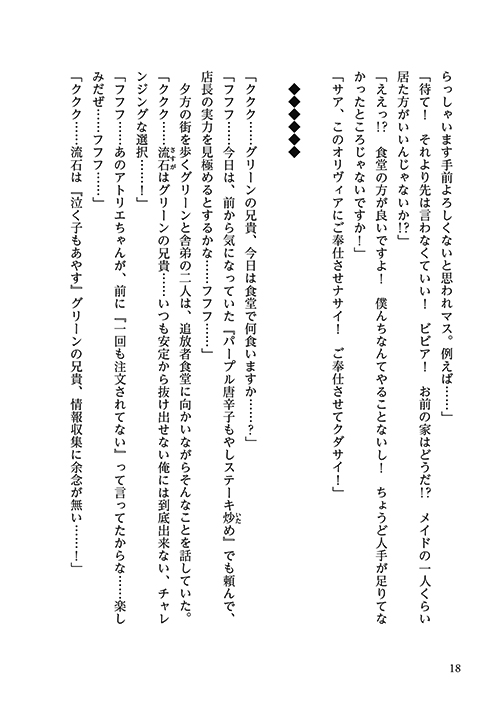 らっしゃいます手前よろしくないと思われマス。例えば……」
「待て！　それより先は言わなくていい！　ビビア！　お前の家はどうだ!?　メイドの一人くらい
居た方がいいんじゃないか!?」
「ええっ!?　食堂の方が良いですよ！　僕んちなんてやることないし！　ちょうど人手が足りてな
かったところじゃないですか！」
「サア、このオリヴィアにご奉仕させナサイ！　ご奉仕させてクダサイ！」
◆◆◆◆◆◆
「ククク……グリーンの兄貴、今日は食堂で何食いますか……？」
「フフフ……今日は、前から気になっていた『パープル唐辛子もやしステーキ炒め』でも頼んで、
店長の実力を見極めるとするかな……フフフ……」
　夕方の街を歩くグリーンと舎弟の二人は、追放者食堂に向かいながらそんなことを話していた。
「ククク……流石はグリーンの兄貴……いつも安定から抜け出せない俺には到底出来ない、チャレ
ンジングな選択……！」
「フフフ……あのアトリエちゃんが、前に『一回も注文されてない』って言ってたからな……楽し
みだぜ……フフフ……」
「ククク……流石は『泣く子もあやす』グリーンの兄貴、情報収集に余念が無い……！」
18